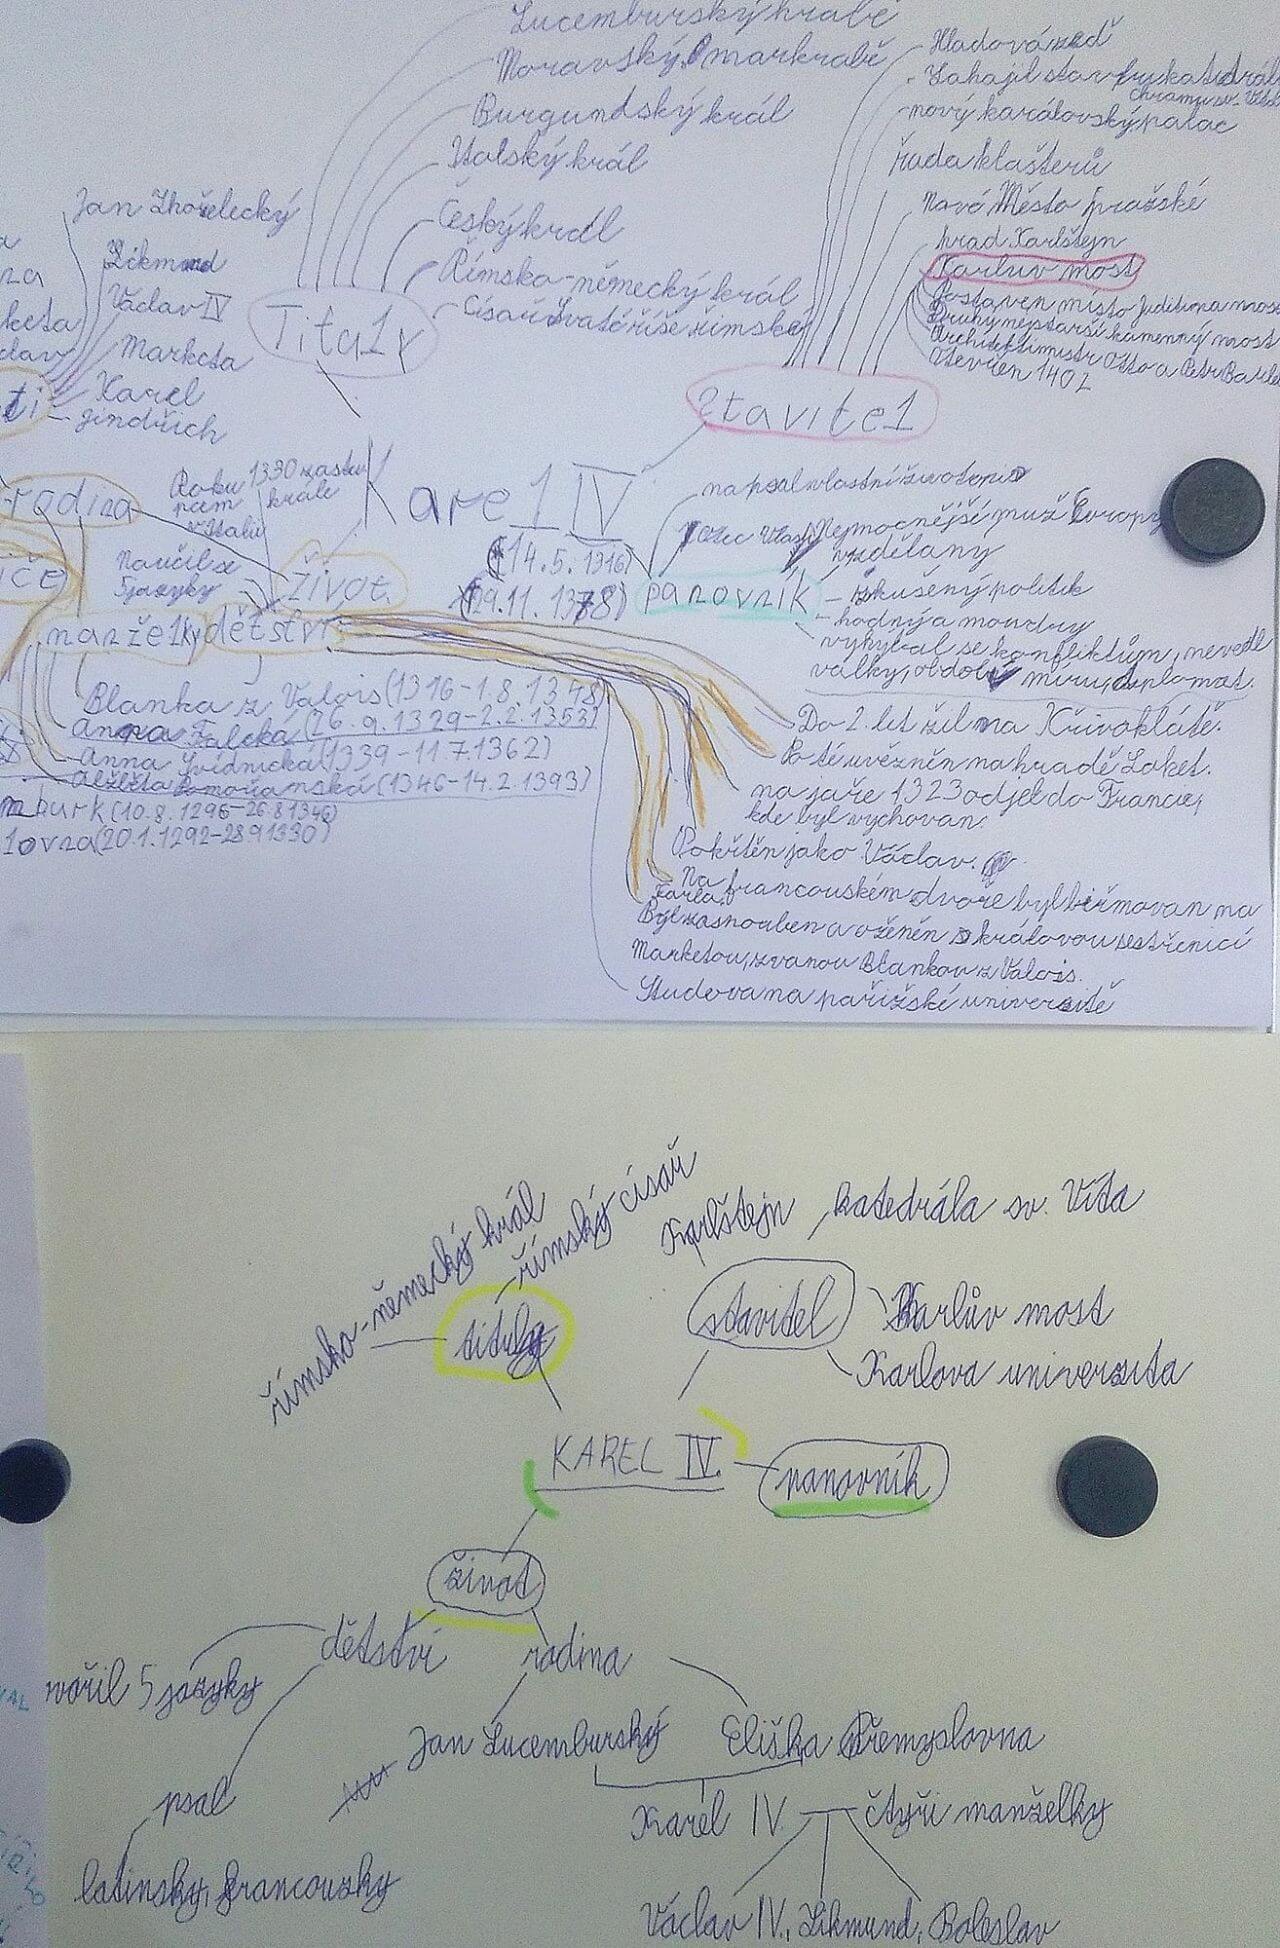 Lucemburský hrabě
Moravský markrabě
Burgundský král
Italský král
Český král
Římsko-německý král
Císař Svaté říše římské
Tituly
Hladová zeď
Zahájil stavbu katedrály
chrámu sv. Víta
nový karálovský palác
řada klášterů
Nové Město pražské
hrad Karlštejn
Karluv most
Postaven místo Juditina mostu
Druhý nejstarší kamenný most
Architekti mistr Otto a Petr
Otevřen 1402
Stavitel
Jan Zhořelecký
Zikmund
Václav IV
Marketa
Karel
Jindřich
rodina
Roku 1330 zastu
krále
v Itálii
Naučil se
5 jazyky
život
Karel IV
(14.5.1316)
(29.11.1378)
panovník
napsal vlastní životopis
Otec vlasti
Nejmocnější muž Evropy
vzdělaný
- zkušený politik
- hodný a moudrý
vyhýbal se konfliktům, nevedl
války, období míru, diplomat.
manželky
dětství
Blanka z Valois (1316-1.8.1348)
Anna Falcká (26.9.1329-2.2.1353)
Anna Svídnická (1339-11.7.1362)
Alžběta Pomořanská (1346-14.2.1393)
mburk (10.8.1296-26.8.1346)
lovna (20.1.1292-28.9.1330)
Do 2. let žil na Křivoklátě.
Poté uvězněn na hradě Loket.
na jaře 1323 odjel do Francie,
kde byl vychován.
Pokřtěn jako Václav.
Na francouském dvoře byl biřmován na
Karla.
Byl zasnouben a oženěn s královou sestřenicí
Marketou, zvanou Blankou z Valois.
Studoval na pařížské universitě
římsko-německý král
římský císař
tituly
Karlštejn
katedrála sv. Víta
stavitel
Karlův most
Karlova univerzita
KAREL IV.
panovník
život
dětství
rodina
5 jazyky
Jan Lucemburský
Eliška Přemyslovna
psal
Karel IV.
čtyři manželky
latinsky, francouzky
Václav IV., Zikmund, Boleslav